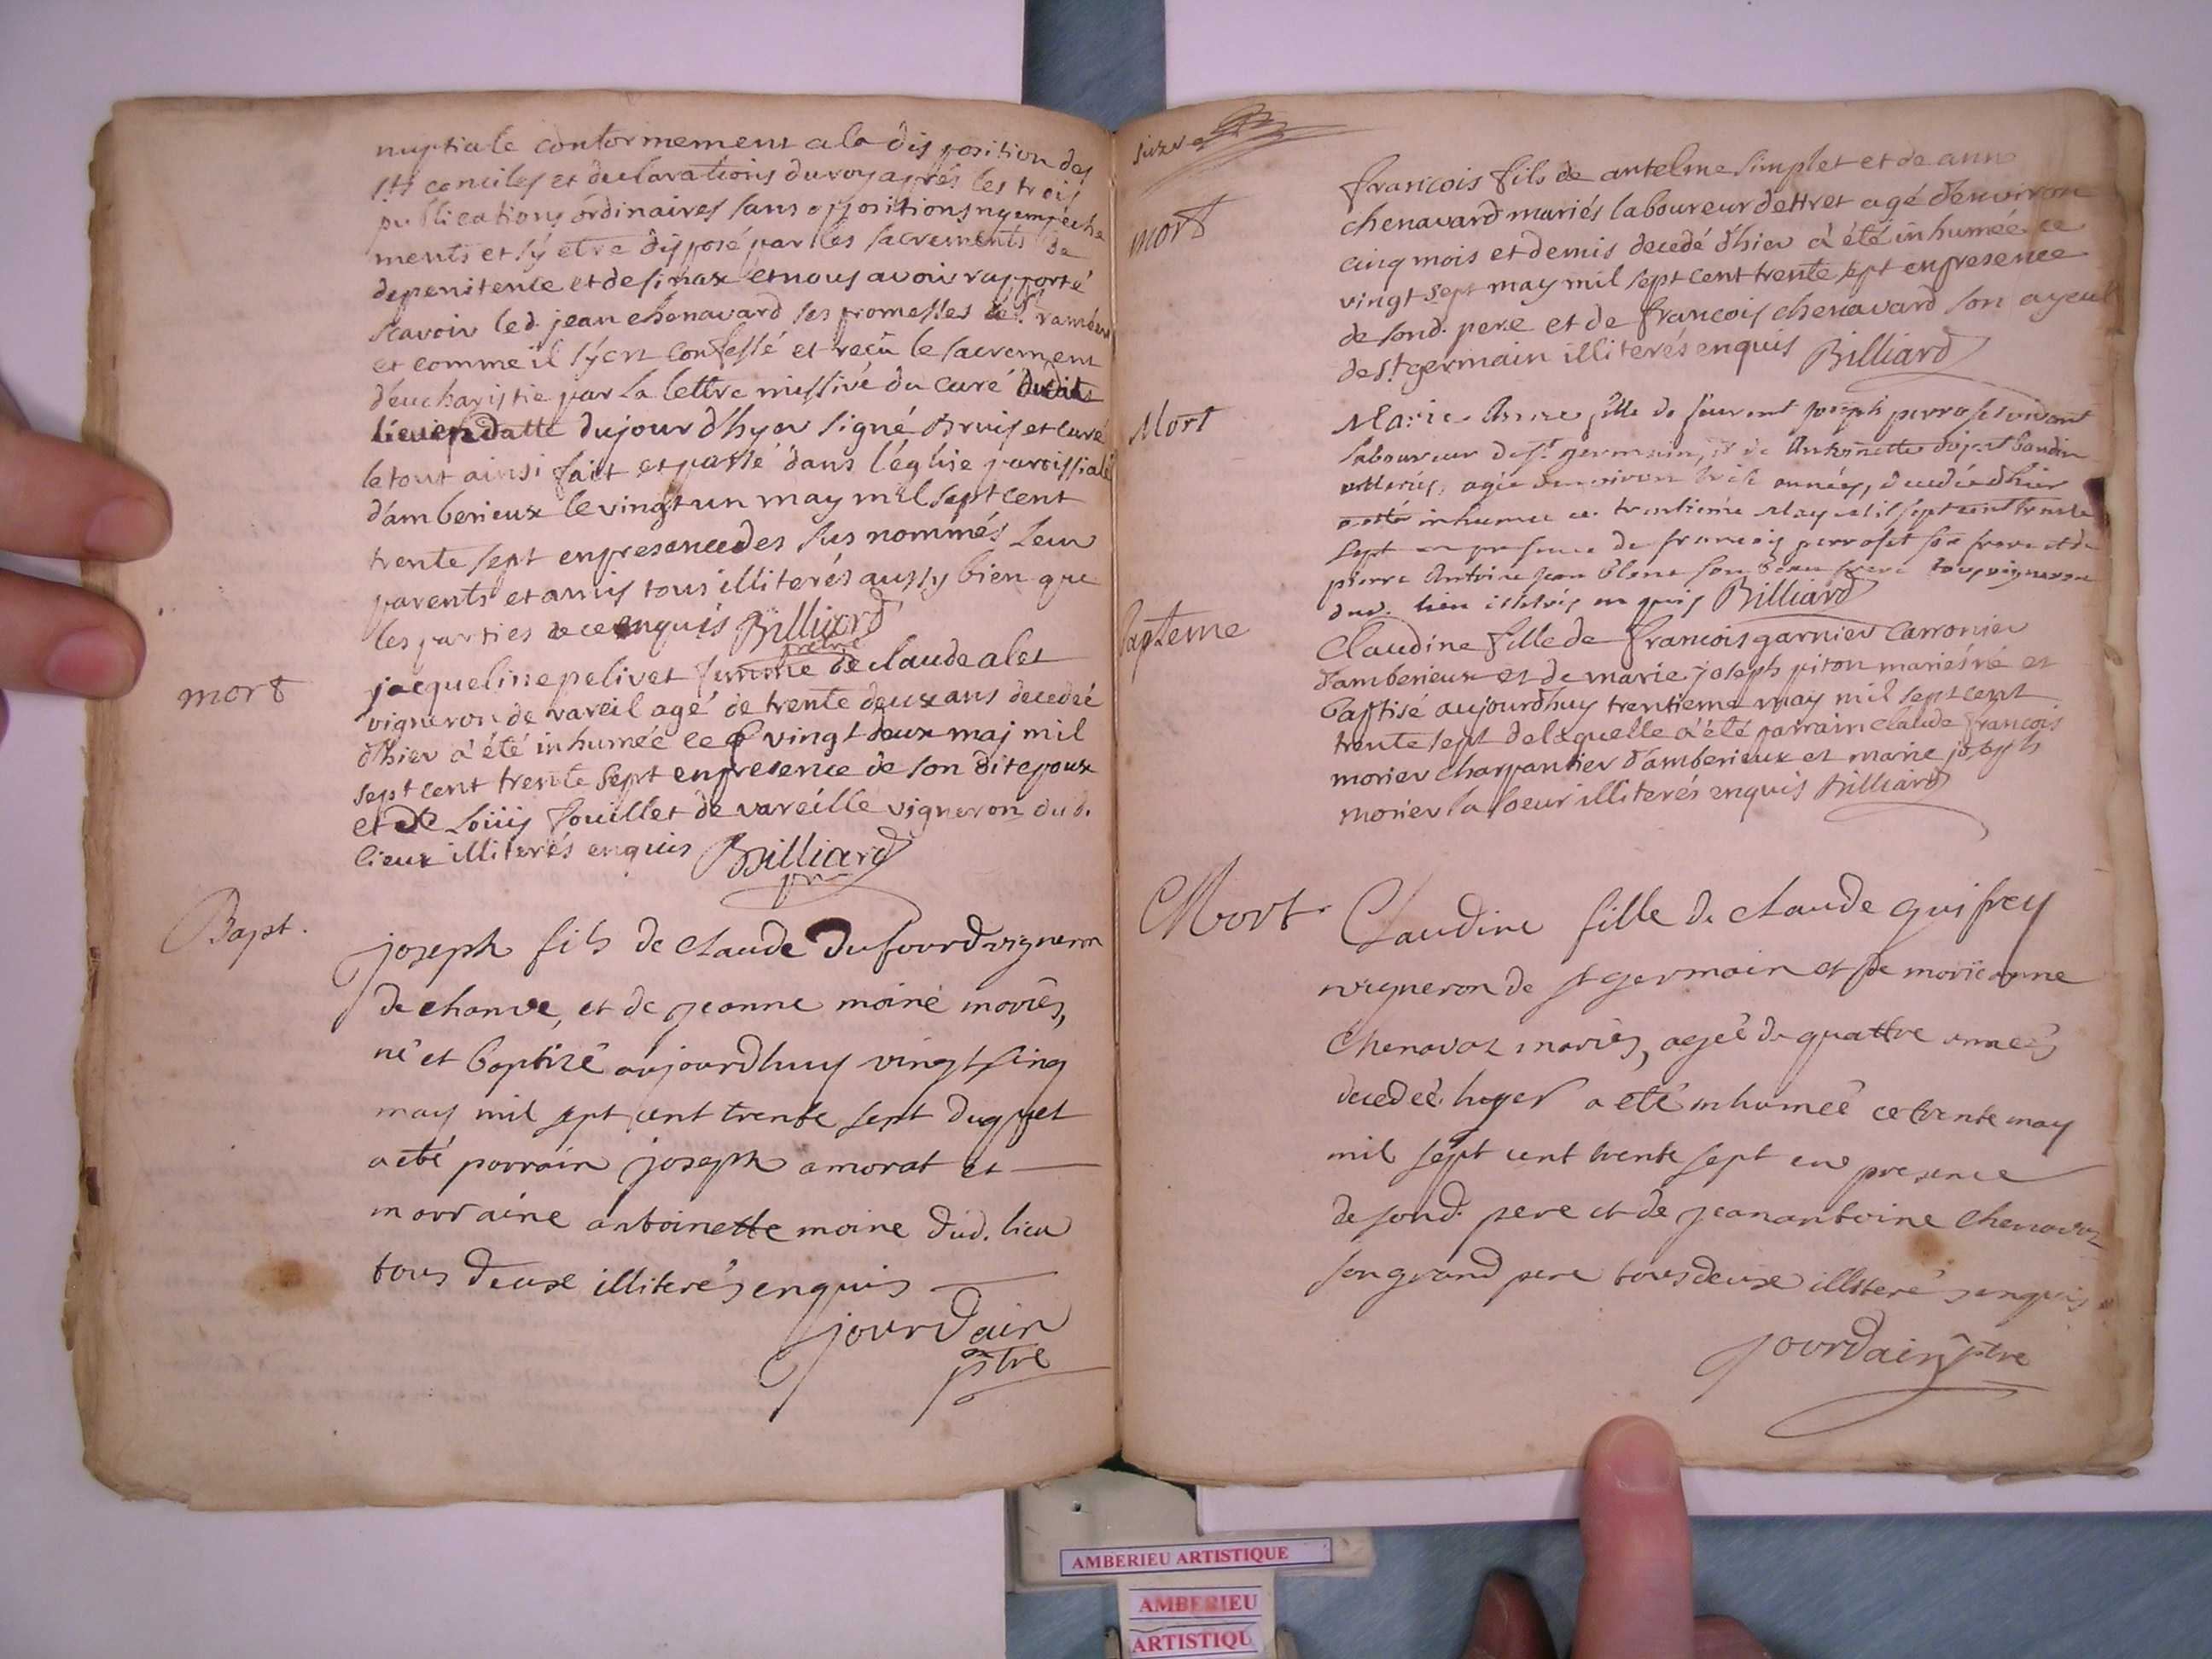 nuptiale conformement a la disposition des
sts conciles et declarations du roy aprés les trois
publications ordinaires sans oppositions ny empeche
ments et s'y etre disposé par les sacrements de
de penitence et nous avoir rapporté
scavoir led. jean chenavard ses promesses
et comme il s'y est confessé et reçu le sacrement
d'eucharistie par la lettre missive du curé dudit
lieu en datte du jour d'hyer signé et curé
le tout ainsi fait et passé dans l'église paroissiale
d'amberieux le vingt un may mil sept cent
trente sept en presence des sus nommés leur
parents et amis tous illiterés aussy bien que
les parties de ce enquis Billiard
prêtre
mort
jacqueline pelivet femme de claude alet
vigneron de vareil agé de trente deux ans decedée
d'hier a été inhumée ce vingt deux maj mil
sept cent trente sept en presence de son dit epoux
et de Loüis fouillet de vareille vigneron dud.
lieux illiterés enquis Billiard
ptre
Bapt.
joseph fils de claude Dufourd vigneron
de chanve, et de jeanne moine mariés,
né et baptizé aujourdhuy vingt sinq
may mil sept cent trente sept duquel
a eté parrain joseph amorat et
marraine antoinette moine dud. lieu
tous deuxe illiterés enquis
jourdain
ptre
mort
francois fils de antelme simplet et de anne
chenavard mariés laboureur dettret agé d'environ
cinq mois et demis decedé d'hier a été inhumée ce
vingt sept may mil sept cent trente sept en presence
de sond. pere et de francois chenavard son ayeul
de st germain illiterés enquis Billiard
Mort
Marie Anne fille de feu joseph perroset vivant
laboureur de st germain, et de Antoinette bandin
mariés, agée d'environ années, decedée d'hier
a esté inhumée ce trentieme May mil sept cent trente
sept en presence de francois perroset son frere et de
pierre Antoine jean blanc son beau frere tous vignerons
dud. lieu enquis Billiard
bapteme
Claudine fille de francois garnier carronier
d'amberieux et de marie joseph piton mariés né et
baptisé aujourdhuy trentieme may mil sept cent
trente sept de laquelle a été parrain claude francois
morier charpantier d'amberieux et marie joseph
morier sa soeur illiterés enquis Billiard
Mort
Claudine fille de claude guifrey
vigneron de st germain et de marie anne
Chenavaz mariés, agée de quattre années
decedée hyer a eté inhumée ce trente may
mil sept cent trente sept en presence
de sond. pere et de jean antoine Chenavaz
son grand pere tous deuxe illiterés enquis
jourdain ptre
AMBERIEU ARTISTIQUE
AMBERIEU
ARTISTIQU